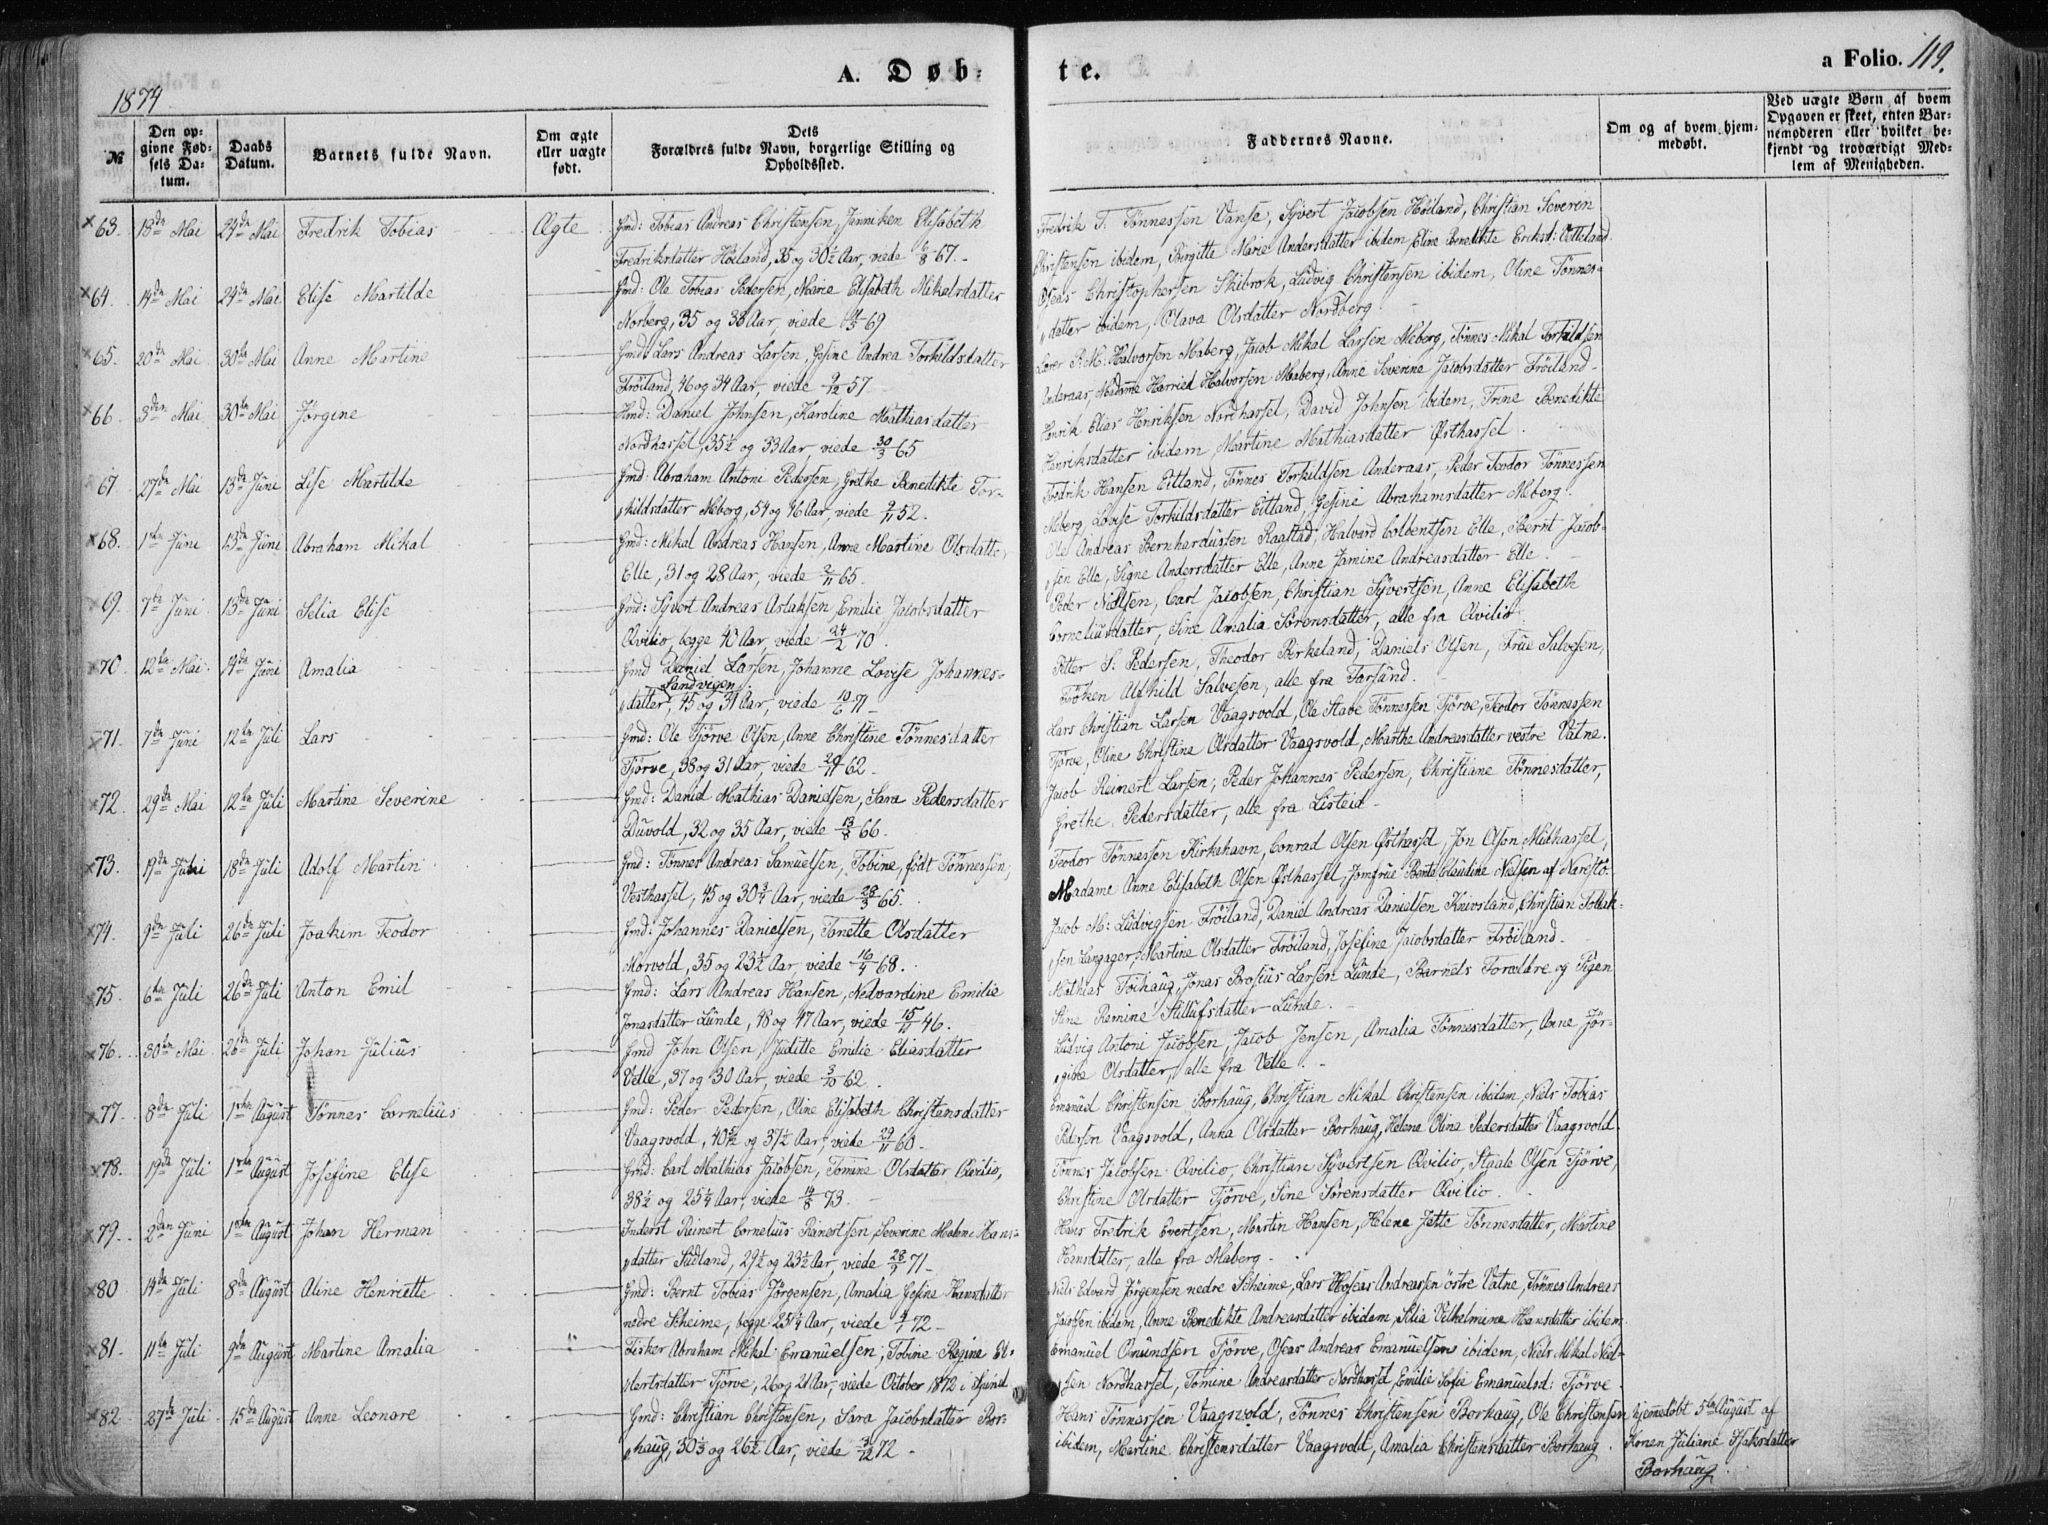 A. Døb:
te.
a Folio. 119.
1874
№
Den opgivne Fødsels Datum.
Daabs Datum.
Barnets fulde Navn.
Om ægte eller uægte født.
Dets Forældres fulde Navn, borgerlige Stilling og Opholdssted.
Faddernes Navne.
Om og af hvem hjemmedøbt.
Ved uægte Børn af hvem Opgaven er skeet, enten Barnemoderen eller hvilket bekjendt og troværdigt Medlem af Menigheden.
63. 18de Mai 24de Mai Fredrik Tobias Ægte
Gmd: Tobias Andreas Christensen, Jenniken Elisabeth
Fredriksdatter Høiland, 35 og 30½ Aar, viede 6/8 67.
Fredrik T. Tönnessen Vanse, Syvert Jacobsen Höiland, Christian Severin
Christensen ibidem, Birgitte Marie Andersdatter ibidem, Eline Benedikte Eriksd: Vetteland.
64. 14de Mai 24de Mai Elise Martilde
Gmd: Ole Tobias Pedersen, Marie Elisabeth Mikalsdatter
Norberg, 35 og 38 Aar, viede 69
Oseas Christophersen Skibrok, Ludvig Christensen ibidem, Oline Tönnes-
datter ibidem, Olava Olsdatter Nordberg.
65. 20de Mai 30te Mai Anne Martine
Gmd: Lars Andreas Larsen, Gesine Andrea Torkildsdatter
Fröiland, 46 og 34 Aar, viede 9/12 57
Lærer P. M. Halvorsen Maberg, Jacob Mikal Larsen Meberg, Tönnes Mikal Torkildsen
Anderaas, Madame Harried Halvorsen Maberg, Anne Severine Jacobsdatter Fröiland.
66. 3den Mai 30te Mai Jörgine
Gmd: Daniel Johnsen, Karoline Mathiasdatter
Nordhassel, 35½ og 33 Aar, viede 30/3 65
Henrik Elias Henriksen Nordhassel, David Johnsen ibidem, Trine Benedikte
Henriksdatter ibidem Martine Mathiasdatter Østhassel.
67. 27de Mai 13de Juni Lise Martilde
Gmd: Abraham Antoni Pedersen, Grethe Benedikte Tor-
kildsdatter Meberg, 54 og 46 Aar, viede 9/11 52.
Fredrik Hansen Eitland, Tönnes Torkildsen Anderaas, Peder Teodor Tönnessen
Meberg, Lovise Torkildsdatter Eitland, Gesine Abrahamsdatter Meberg.
68. 1ste Juni 13de Juni Abraham Mikal
Gmd: Mikal Andreas Hansen, Anne Martine Olsdatter
Elle, 31 og 28 Aar, viede 2/11 65.
Ole Andreas Bernhardusen Raastad, Halvard Colbentsen Elle, Bernt Jacob-
sen Elle, Signe Andersdatter Elle, Anne Jamine Andreasdatter Elle.
69. 7de Juni 13de Juni Selia Elise
Gmd: Syvert Andreas Aslaksen, Emilie Jacobsdatter
Qvilio, begge 40 Aar, viede 24/2 70.
Peder Nielsen, Carl Jacobsen, Christian Syvertsen, Anne Elisabeth
Corneliusdatter, Sine Amalia Sörensdatter, alle fra Qvilio.
70. 12te Mai. 14de Juni Amalia
Gmd Daniel Larsen, Johanne Lovise Johannes-
datter, Sandvigen 45 og 31 Aar, viede 10/6 71
Pitter S. Pedersen, Theodor Birkeland, Daniels Olsen, Frue Salvesen,
Fröken Alfhild Salvesen, alle fra Farsund.
71. 7de Juni 12te Juli Lars
Gmd: Ole Tjörve Olsen, Anne Christine Tönnesdatter
Tjörve, 38 og 31 Aar, viede 62.
Lars Christian Larsen Vaagsvold, Ole Stabe Tönnessen Tjörve, Teodor Tönnessen
Tjörve, Oline Christina Olsdatter Vaagsvold, Marthe Andreasdatter vestre Vatne.
72. 29de Mai 12te Juli Martine Severine
Gmd: Daniel Mathias Danielsen, Sara Pedersdatter
Duvold, 32 og 35 Aar, viede 13/8 66.
Jacob Reinert Larsen, Peder Johannes Pedersen, Christiane Tönnesdatter,
Grethe Pedersdatter, alle fra Listeid
73. 19de Juni 18de Juli Adolf Martin
Gmd: Tönnes Andreas Samuelsen, Tobine, födt Tönnessen,
Vesthassel, 45 og 30¾ Aar, viede 28/3 65.
Teodor Tönnessen Kirkehavn, Conrad Olsen Østhassel, Jon Olson Midhassel,
Madame Anne Elisabeth Olsen Østhassel, Jomfrue Bente Claudine Nielsen af Narestö.
74. 9de Juli 26de Juli Joakim Teodor
Gmd: Johannes Danielsen, Tonette Olsdatter
Morvold, 35 og 23½ Aar, viede 16/4 68.
Jacob M: Ludvigsen Fröiland, Daniel Andreas Danielsen Knivsland, Christian Tollak-
sen Langager, Martine Olsdatter Fröiland, Josefine Jacobsdatter Fröiland.
75. 6te Juli 26de Juli Anton Emil
Gmd: Lars Andreas Hansen, Nedvardine Emilie
Jonasdatter Lunde, 48 og 47 Aar, viede 15/11 46.
Mathias Föihaug, Jonas Brosius Larsen Lunde, Barnets Forældre og Pigen
Stine Remine Stillufsdatter Lunde.
76. 30te Mai 26de Juli Johan Julius
Gmd John Olsen, Juditte Emilie Eliasdatter
Velle, 37 og 30 Aar, viede 3/10 62.
Ludvig Antoni Jacobsen, Jacob Jensen, Amalia Tönnesdatter, Anne Jör-
gine Olsdatter, alle fra Velle.
77. 8de Juli 1ste August Tönnes Cornelius
Gmd: Peder Pedersen, Oline Elisabeth Christensdatter
Vaagsvold, 40 og 37½ Aar, viede 29/11 60.
Emanuel Christensen Borhaug, Christian Mikal Christensen ibidem, Niels Tobias
Pedersen Vaagsvold, Anna Olsdatter Borhaug, Helene Olina Pedersdatter Vaagsvold.
78. 19de Juli 1ste August Josefine Elise
Gmd: Carl Mathias Jacobsen, Tomine Olsdatter Qvilio,
38½ og 25¼ Aar, viede 14/8 73.
Tönnes Jacobsen Qvilio, Christian Syvertsen Qvilio, Staale Olsen Tjörve,
Christine Olsdatter Tjörve, Sine Sörensdatter Qvilio.
79. 2den Juni 1ste August Johan Herman
Inderst Reinert Cornelius Reinertsen, Severine Malene Hans-
datter Sudland, 29½ og 23½ Aar, viede 71
Hans Fredrik Evertsen, Martin Hansen, Helene Jette Tönnesdatter, Martine
Hansdatter, alle fra Maberg.
80 14de Juli 8de August Aline Henriette
Gmd: Bernt Tobias Jörgensen, Amalia Gesine Hansdatter
nedre Skeime, begge 25¼ Aar, viede 72
Niels Edvard Jörgensen nedre Scheime, Lars Hoseas Andreassen östre Vatne, Tönnes Andreas
Jacobsen ibidem, Anne Benedikte Andreasdatter ibidem, Silia Vilhelmine Hansdatter ibidem
81. 11te Juli 9de August Martine Amalia
Fisker Abraham Mikal Emanuelsen, Tobine Regine El-
lertsdatter Tjörve, 26 og 21 Aar, viede October 1872 i Spind
Emanuel Omundsen Tjörve, Oseas Andreas Emanuelsen ibidem, Niels Mikal Niel-
sen Nordhassel, Tomine Andreasdatter Nordhassel, Emilie Sofie Emanuelsd: Tjörve
82 27de Juli 15de August Anne Leonare
Gmd: Christian Christensen, Sara Jacobsdatter Bor-
haug, 30⅓ og 26½ Aar, viede 3/12 72
Hans Tönnessen Vaagsvold, Tönnes Christensen Borhaug, Ole Christensen
ibidem, Martine Christensdatter Vaagsvold, Amalia Christensdatter Borhaug.
hjemmedöbt 5te August af
Konen Juliane Isaksdatter
Borhaug.